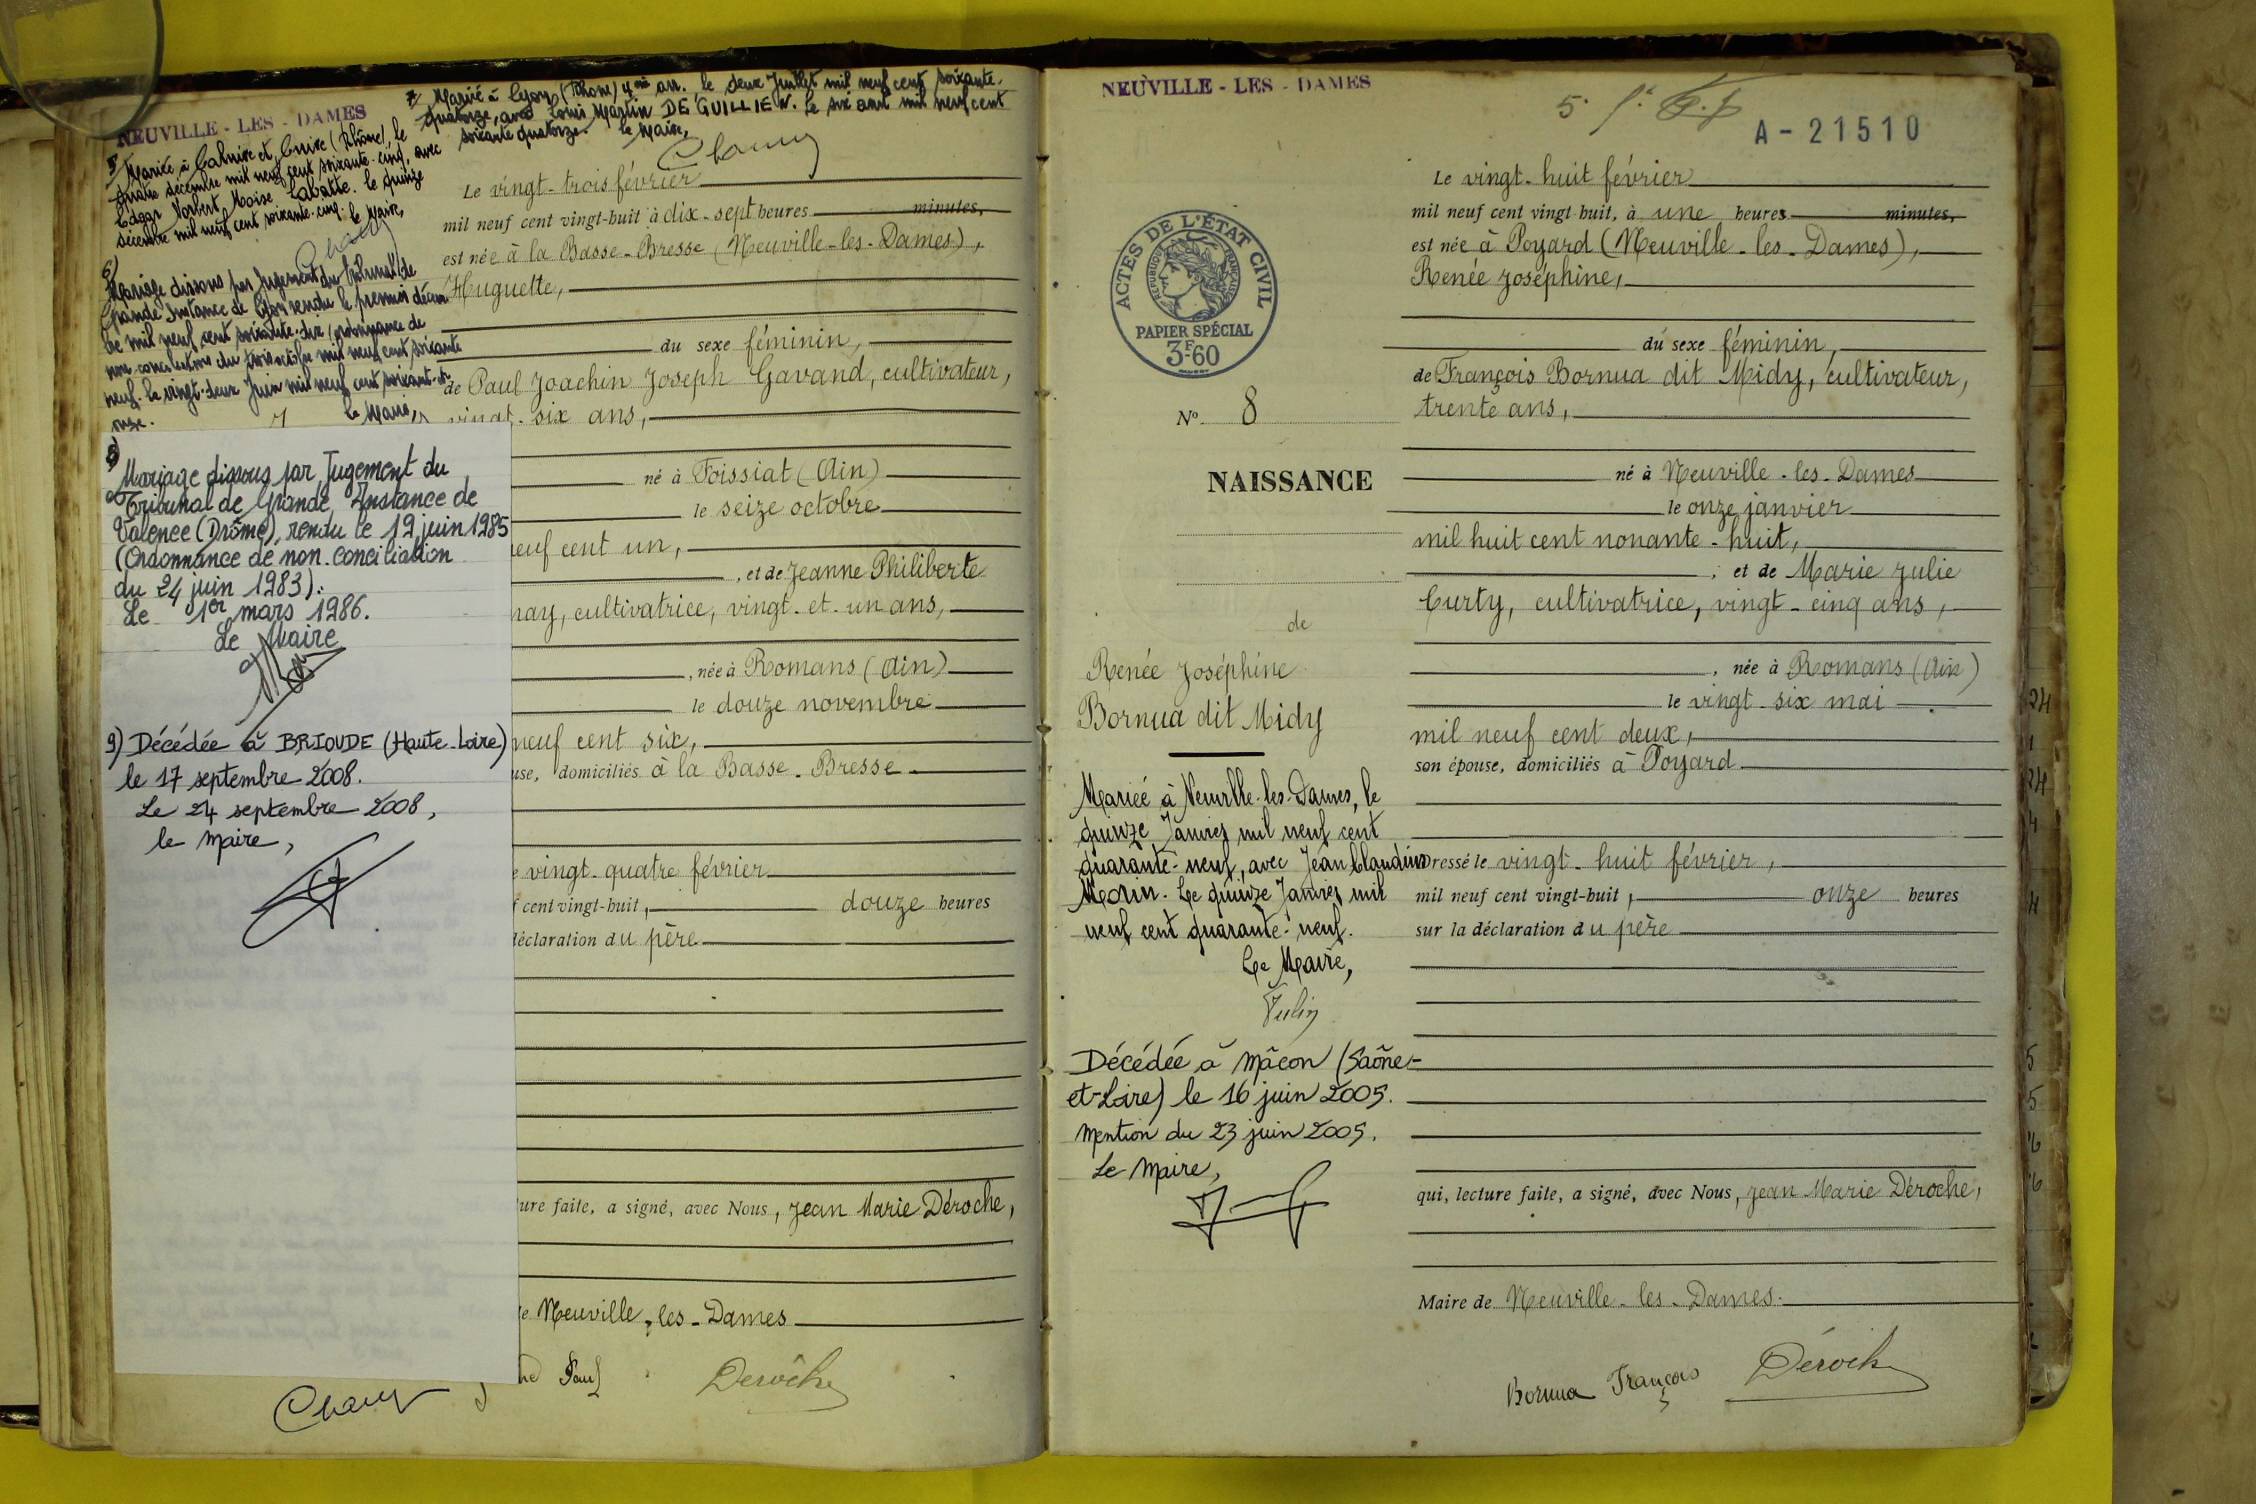 NEUVILLE - LES - DAMES
5) Mariée à Caluire et Cuire (Rhône), le
quatre décembre mil neuf cent soixante-cinq, avec
Edgar Norbert Moïse Labatte. le quinze
décembre mil neuf cent soixante-cinq. le Maire,
6)
Mariage dissous par Jugement du Tribunal de
Grande Instance de Lyon rendu le premier décem
bre mil neuf cent soixante-dix (ordonnance de
non conciliation du trois octobre mil neuf cent soixante
neuf. le vingt-deux Juin mil neuf cent soixante et
onze.
le Maire,
8)
Mariage dissous par Jugement du
Tribunal de Grande Instance de
Valence (Drôme), rendu le 12 juin 1985
(Ordonnance de non-conciliation
du 24 juin 1983).
Le 1er mars 1986.
Le Maire
9) Décédée à BRIOUDE (Haute-Loire)
le 17 septembre 2008.
Le 24 septembre 2008,
le Maire,
7 Marié à Lyon (Rhône) 4me arr. le deux Juillet mil neuf cent soixante-
quatorze, avec Louis Martin DE GUILLIEN. le six août mil neuf cent
soixante quatorze. le Maire,
Le vingt-trois février
mil neuf cent vingt-huit à dix-sept heures minutes,
est née à la Basse-Bresse (Neuville-les-Dames),
Huguette,
du sexe féminin,
de Paul Joachin Joseph Gavand, cultivateur,
vingt-six ans,
né à Foissiat (Ain)
le seize octobre
neuf cent un,
, et de Jeanne Philiberte
nay, cultivatrice, vingt-et-un ans,
, née à Romans (Ain)
le douze novembre
neuf cent six,
use, domiciliés à la Basse-Bresse
e vingt-quatre février
f cent vingt-huit, douze heures
déclaration du père
ture faite, a signé, avec Nous, Jean Marie Déroche,
e Neuville-les-Dames
Paul Déroche
NEUVILLE - LES - DAMES
A - 21510
ACTES DE L'ÉTAT CIVIL
RÉPUBLIQUE FRANÇAISE
PAPIER SPÉCIAL
3F60
N° 8
NAISSANCE
de
Renée Joséphine
Bornua dit Midy
Mariée à Neuville-les-Dames, le
quinze Janvier mil neuf cent
quarante-neuf, avec Jean Claudius
Morin. Le quinze Janvier mil
neuf cent quarante-neuf.
Le Maire,
Décédée à Mâcon (Saône-
et-Loire) le 16 juin 2005.
Mention du 23 juin 2005.
Le Maire,
Le vingt-huit février
mil neuf cent vingt-huit, à une heures minutes,
est née à Poyard (Neuville-les-Dames),
Renée Joséphine,
du sexe féminin,
de François Bornua dit Midy, cultivateur,
trente ans,
né à Neuville-les-Dames
le onze janvier
mil huit cent nonante-huit,
; et de Marie Julie
Curty, cultivatrice, vingt-cinq ans,
, née à Romans (Ain)
le vingt-six mai
mil neuf cent deux,
son épouse, domiciliés à Poyard
Dressé le vingt-huit février,
mil neuf cent vingt-huit, onze heures
sur la déclaration du père
qui, lecture faite, a signé, avec Nous, Jean Marie Déroche,
Maire de Neuville-les-Dames.
Bornua François Déroche